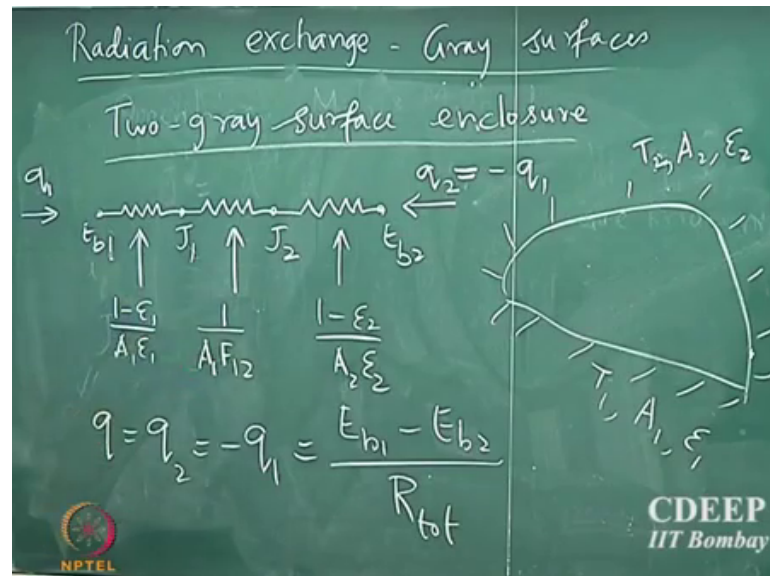 Radiation exchange - Gray surfaces
Two-gray surface enclosure
q₁
q₂ = - q₁
E_b1 J₁ J₂ E_b2
(1-ε₁)/(A₁ε₁) 1/(A₁F₁₂) (1-ε₂)/(A₂ε₂)
T₂, A₂, ε₂
T₁, A₁, ε₁
q = q₂ = -q₁ = (E_b1 - E_b2)/R_tot
NPTEL
CDEEP
IIT Bombay